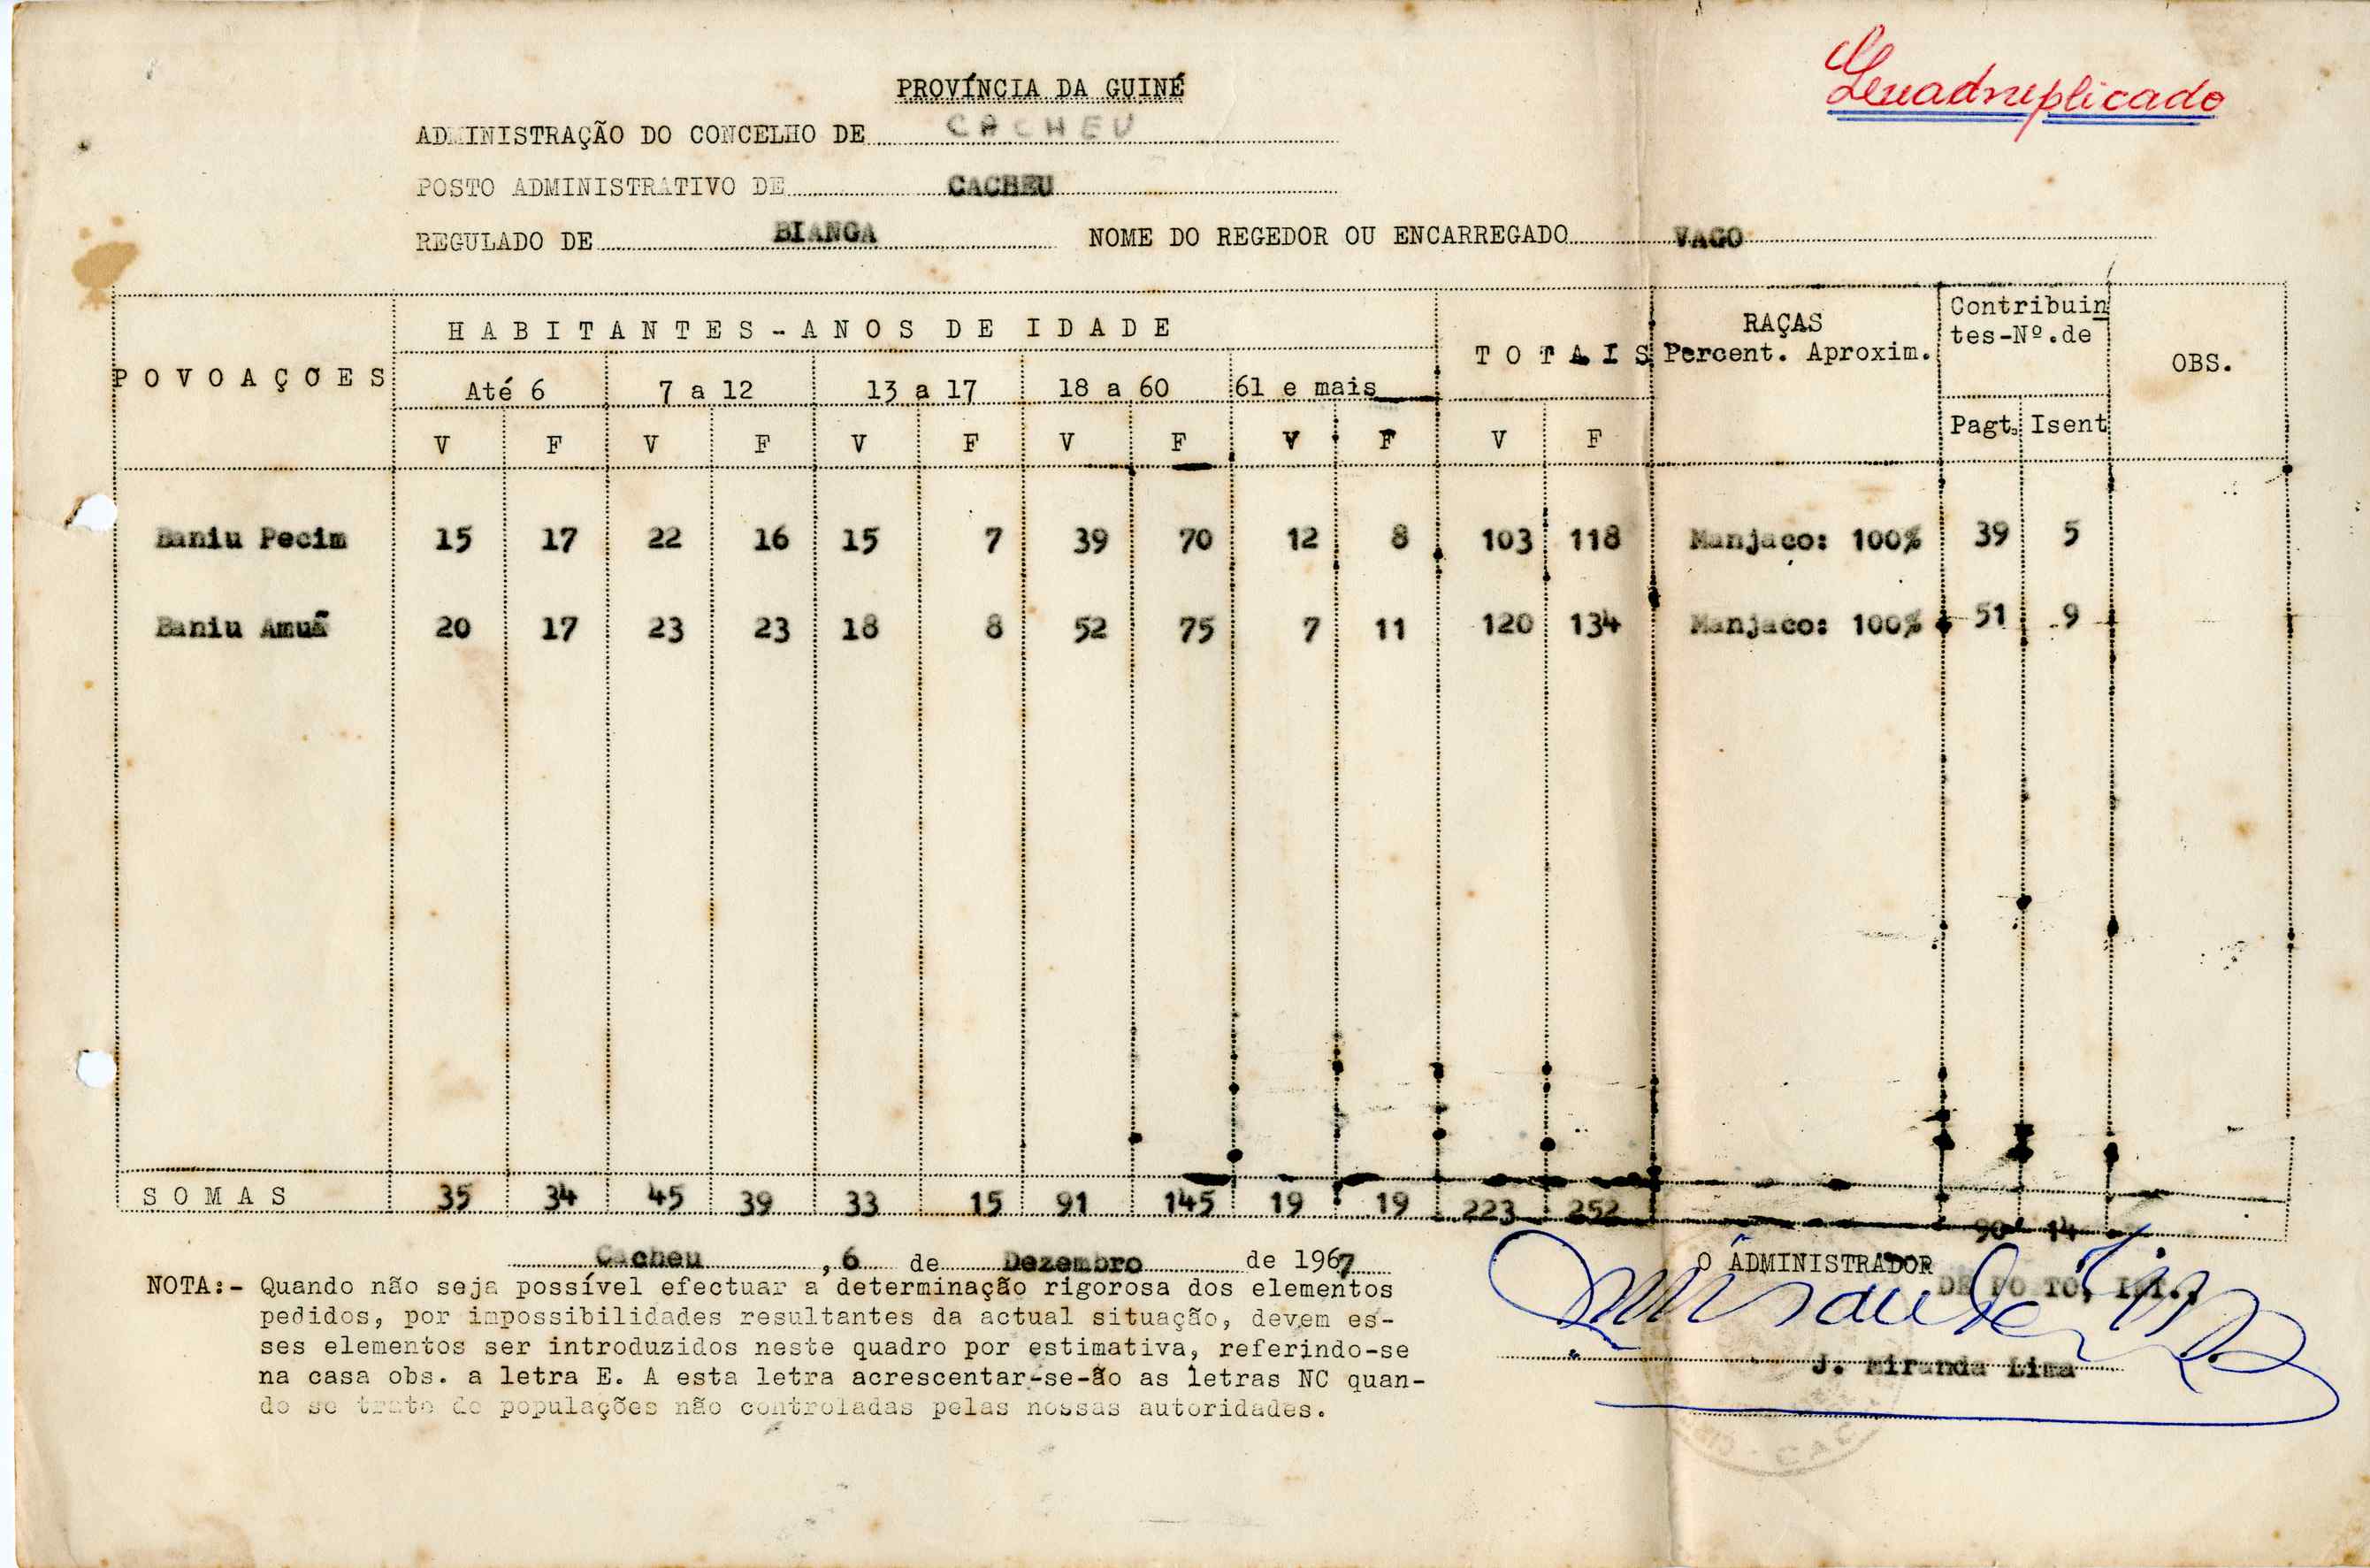 Quadruplicado
PROVÍNCIA DA GUINÉ
ADMINISTRAÇÃO DO CONCELHO DE CACHEU
POSTO ADMINISTRATIVO DE CACHEU
REGULADO DE BIANGA NOME DO REGEDOR OU ENCARREGADO VAGO
POVOAÇÕES HABITANTES-ANOS DE IDADE TOTAIS RAÇAS Percent. Aproxim. Contribuin tes-Nº.de OBS.
Até 6 7 a 12 13 a 17 18 a 60 61 e mais
V F V F V F V F V F V F Pagt. Isent
Baniu Pecim 15 17 22 16 15 7 39 70 12 8 103 118 Manjaco: 100% 39 5
Baniu Amuã 20 17 23 23 18 8 52 75 7 11 120 134 Manjaco: 100% 51 9
SOMAS 35 34 45 39 33 15 91 145 19 19 223 252 90 14
Cacheu, 6 de Dezembro de 1967
NOTA:- Quando não seja possível efectuar a determinação rigorosa dos elementos
pedidos, por impossibilidades resultantes da actual situação, devem es-
ses elementos ser introduzidos neste quadro por estimativa, referindo-se
na casa obs. a letra E. A esta letra acrescentar-se-ão as letras NC quan-
do se trate de populações não controladas pelas nossas autoridades.
O ADMINISTRADOR
DE POSTO, INT.,
J. Miranda Lima